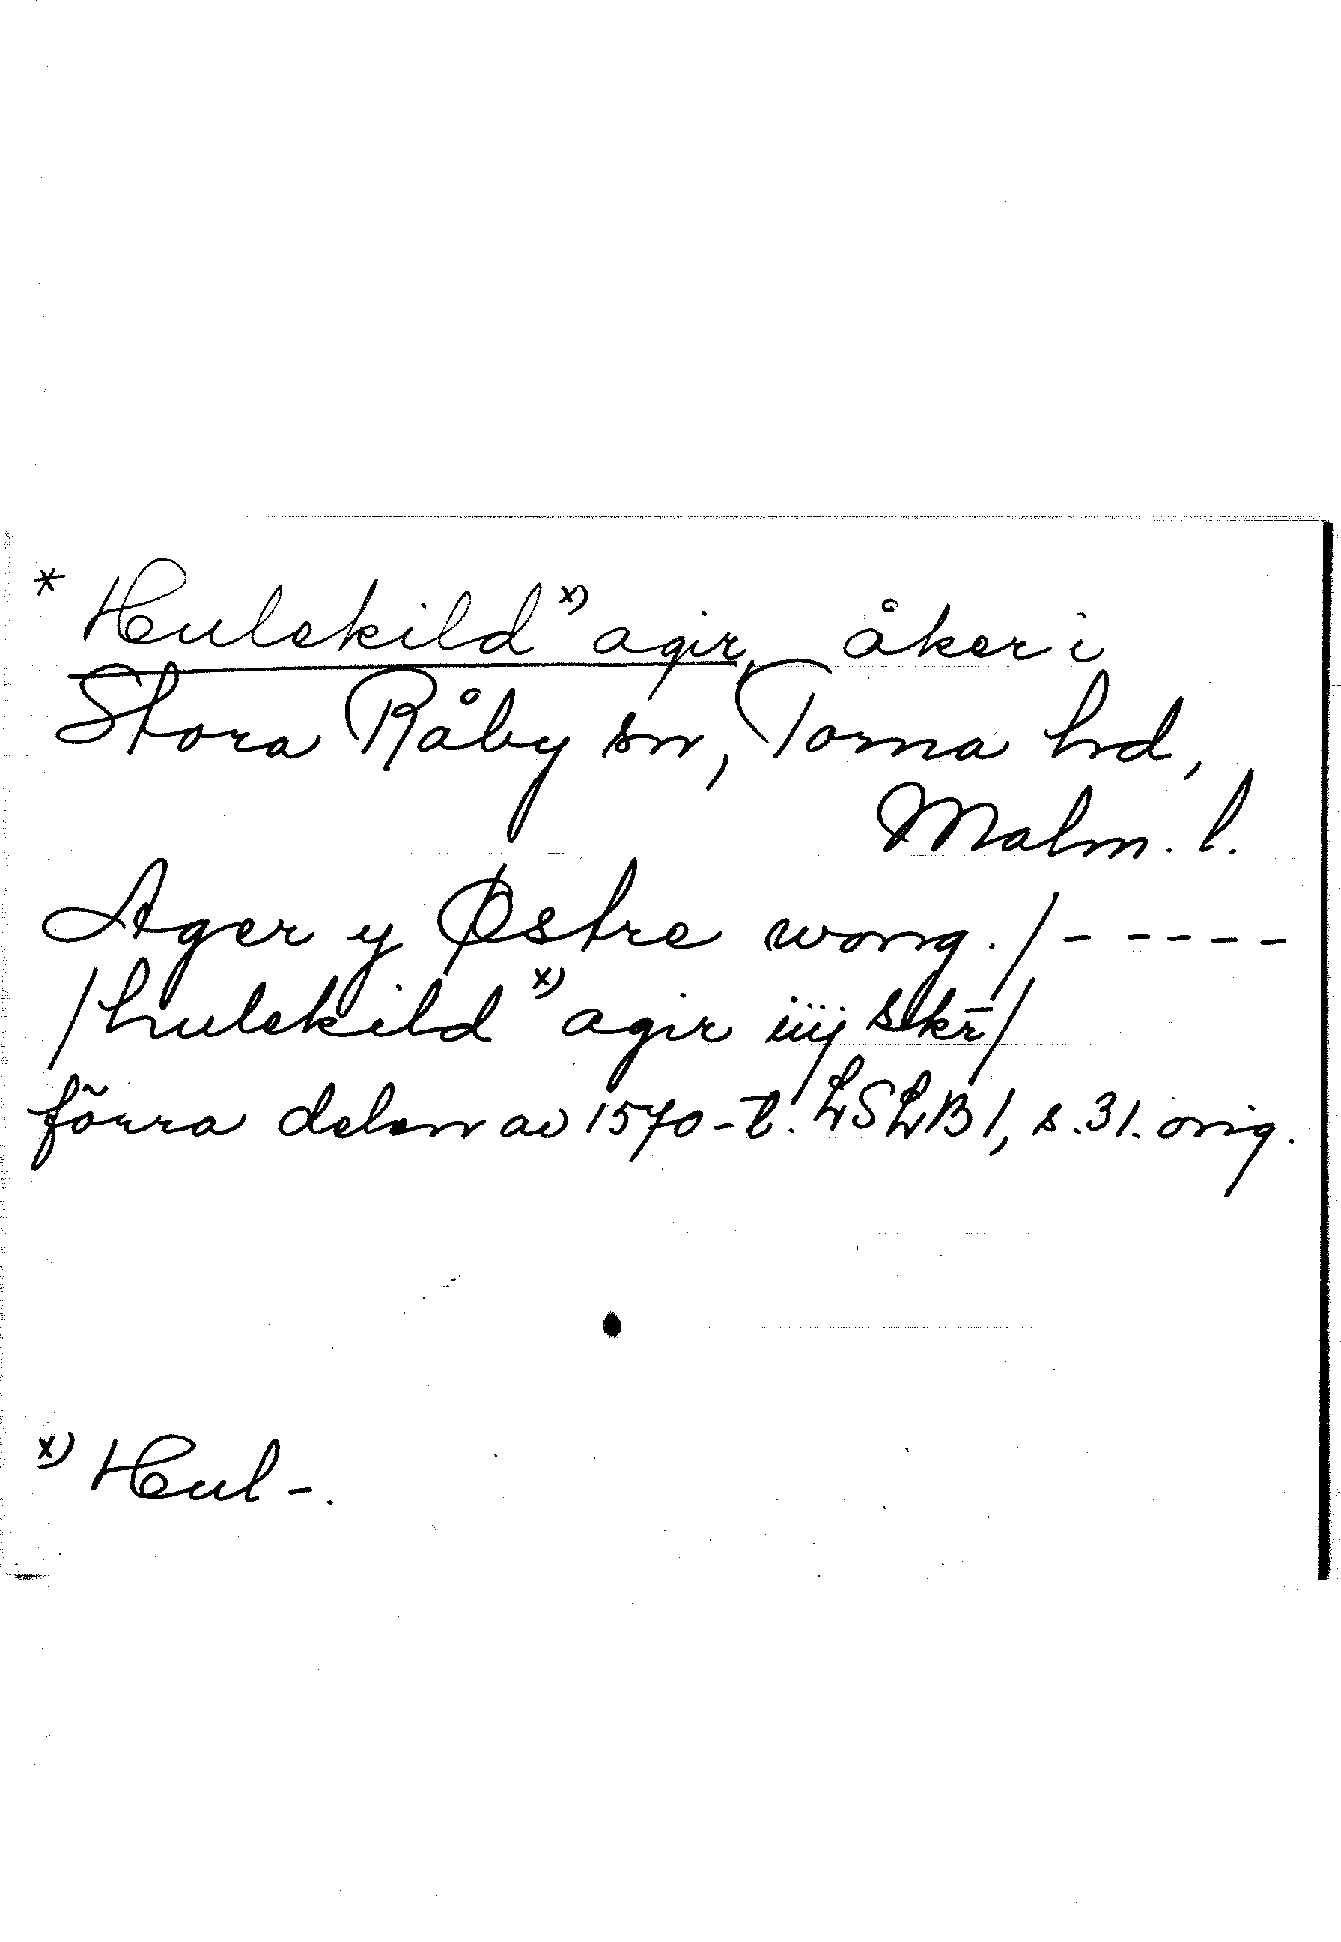 * Hulekild x) agir, åker i
Stora Råby sn, Torna hd,
Malm. l.
Ager y Østre wong. / - - - - -
/ hulekild x) agir iiij skr̄ /
förra delen av 1570-t. LSLB I, s. 31. orig.
x) Hul-.